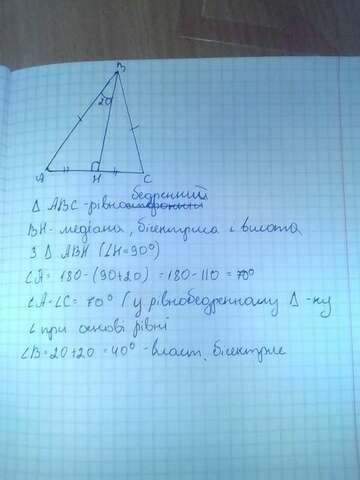 B
20
A
H
C
бедренний
Δ ABC - рівносторонній
BH - медіана, бісектриса і висота
З Δ ABH (∠H=90°)
∠A = 180-(90+20) = 180-110 = 70°
∠A=∠C = 70° (у рівнобедренному Δ-ку
∠ при основі рівні
∠B=20+20=40° - власт. бісектрис